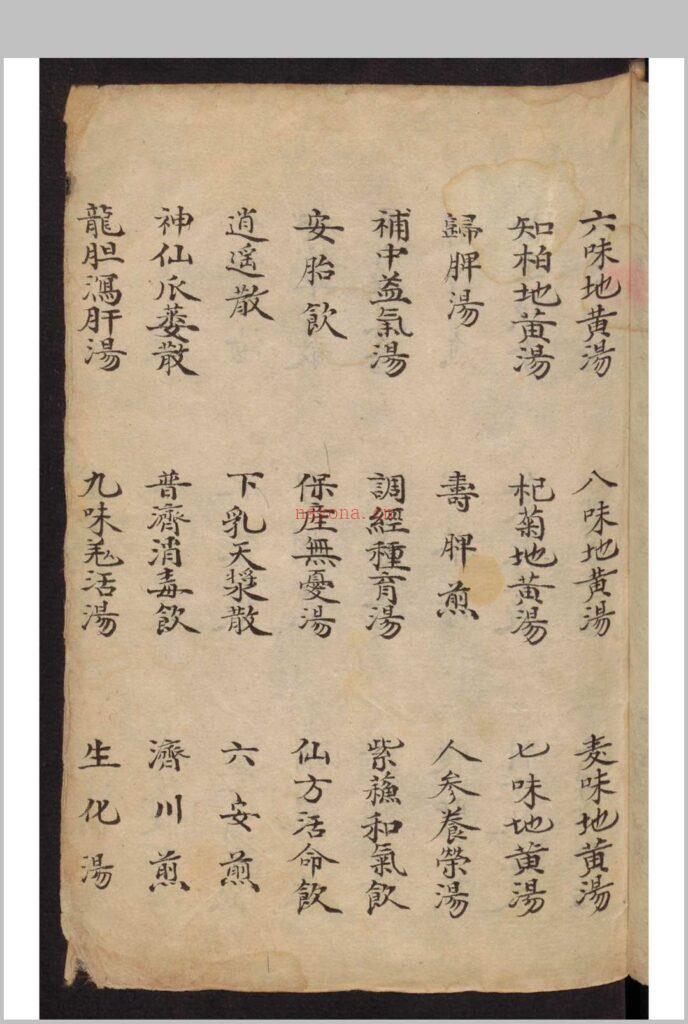 六味地黄湯
八味地黄湯
麦味地黄湯
知柏地黄湯
杞菊地黄湯
七味地黄湯
歸脾湯
壽脾煎
人参養榮湯
補中益氣湯
調經種育湯
紫蘓和氣飲
安胎飲
保産無憂湯
仙方活命飲
逍遥散
下乳天漿散
六安煎
神仙爪蔞散
普濟消毒飲
濟川煎
龍胆瀉肝湯
九味羌活湯
生化湯